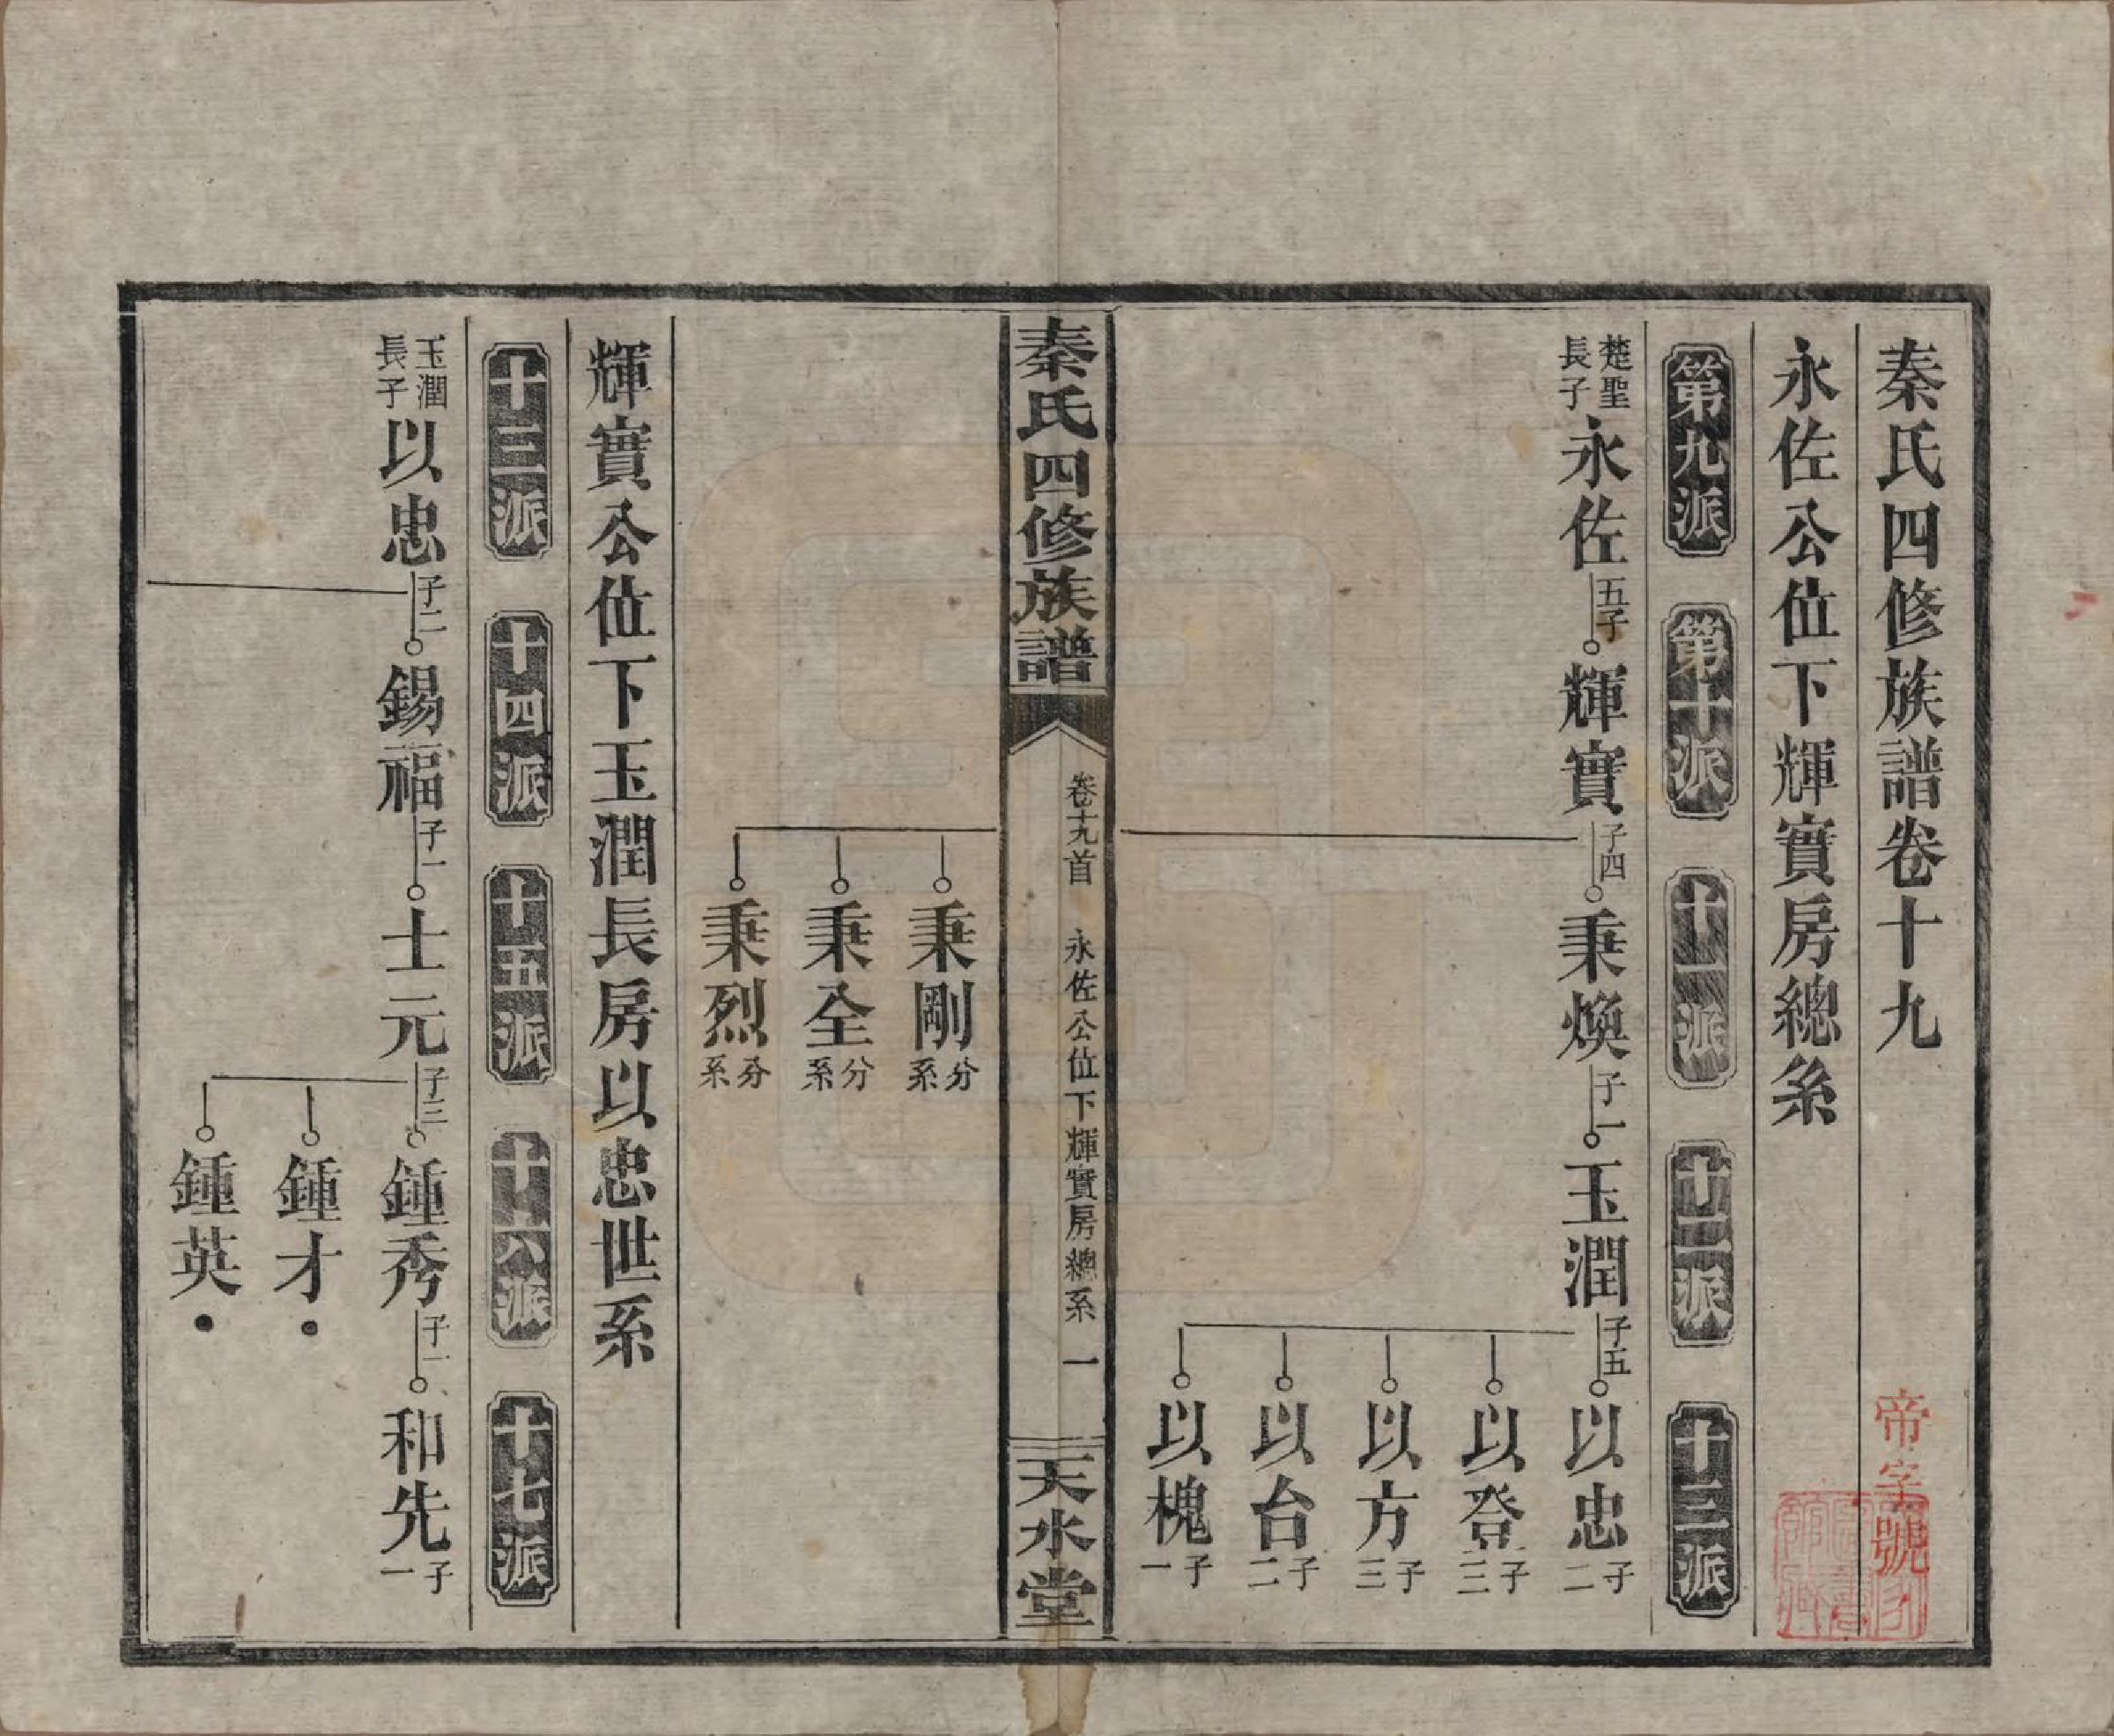 秦氏四修族譜卷十九
帝字號
永佐公位下輝實房總系
第九派 第十派 十一派 十二派 十三派
楚聖長子永佐 五子 輝實 子四 秉煥 子一 玉潤 子五 以忠 子二
以登 子三
以方 子三
以台 子二
以槐 子一
秦氏四修族譜 卷十九首 永佐公位下輝實房總系 一 天水堂
秉剛 分系
秉全 分系
秉烈 分系
輝實公位下玉潤長房以忠世系
十三派 十四派 十五派 十六派 十七派
玉潤長子以忠 子二 錫福 子一 士元 子三 鍾秀 子一 和先 子一
鍾才
鍾英